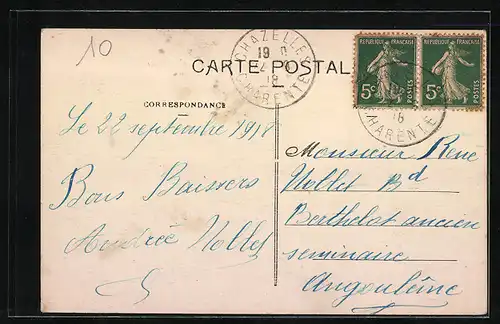 10
CHAZELLES
19
18
CHARENTE
CARTE POSTALE
REPUBLIQUE FRANÇAISE
5c POSTES
REPUBLIQUE FRANÇAISE
5c POSTES
18
CHARENTE
CORRESPONDANCE
Le 22 septembre 1918
Bons Baisers
Andrée Noblet
Monsieur Rene
Noblet Bd
Berthelot ancien
seminaire
Angoulême